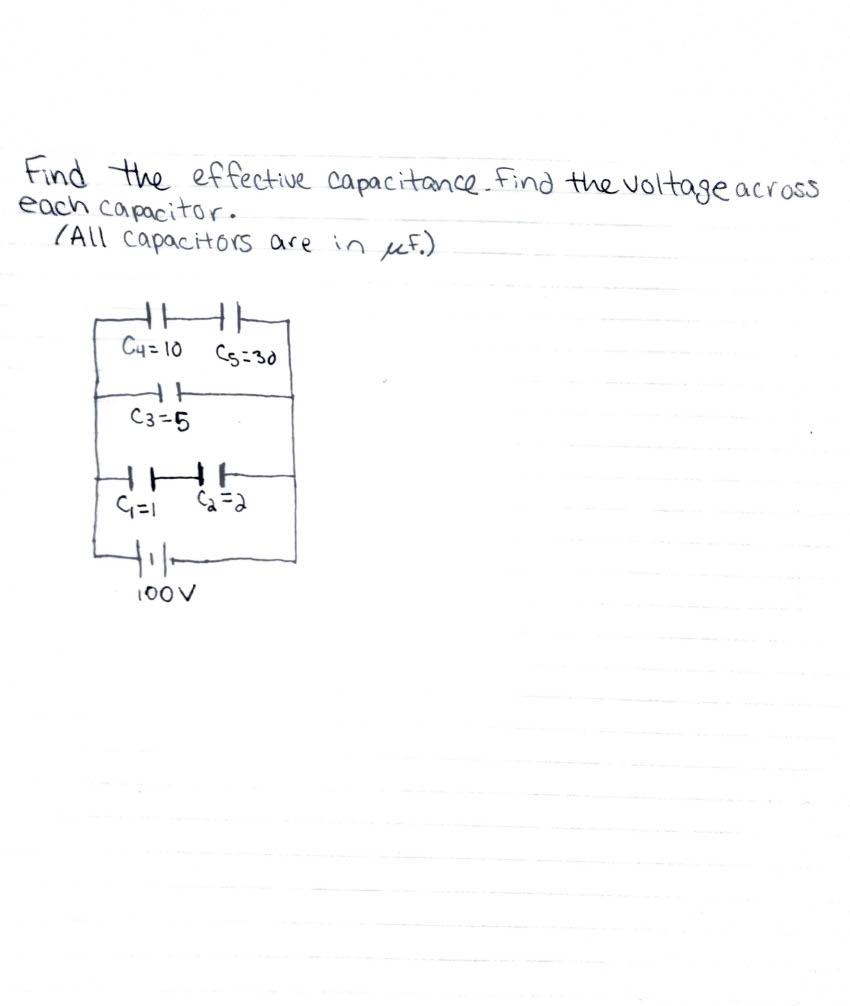 Find the effective capacitance. Find the voltage across
each capacitor.
(All capacitors are in μF.)
C4=10 C5=30
C3=5
C1=1 C2=2
100V